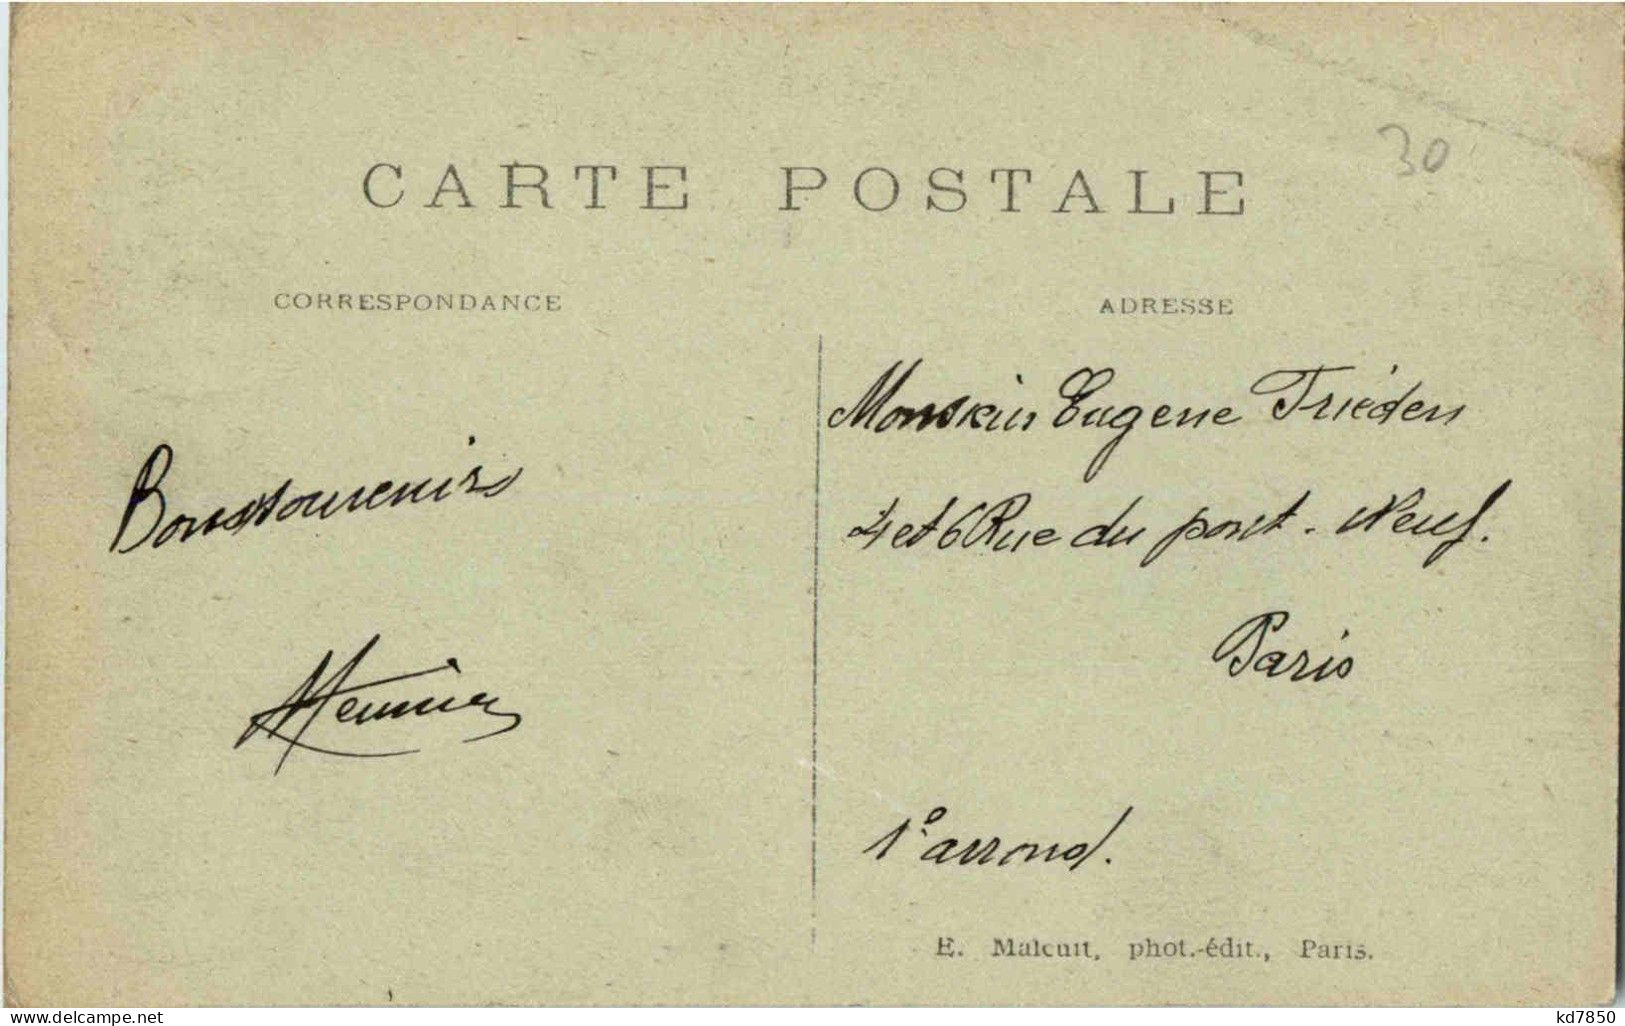 CARTE POSTALE
30
CORRESPONDANCE
Bons souvenirs
Meunier
ADRESSE
Monsieur Eugene Trieden
4 et 6 Rue du pont. Neuf.
Paris
1º arrond.
E. Malcuit, phot.-édit., Paris.
www.delcampe.net
kd7850